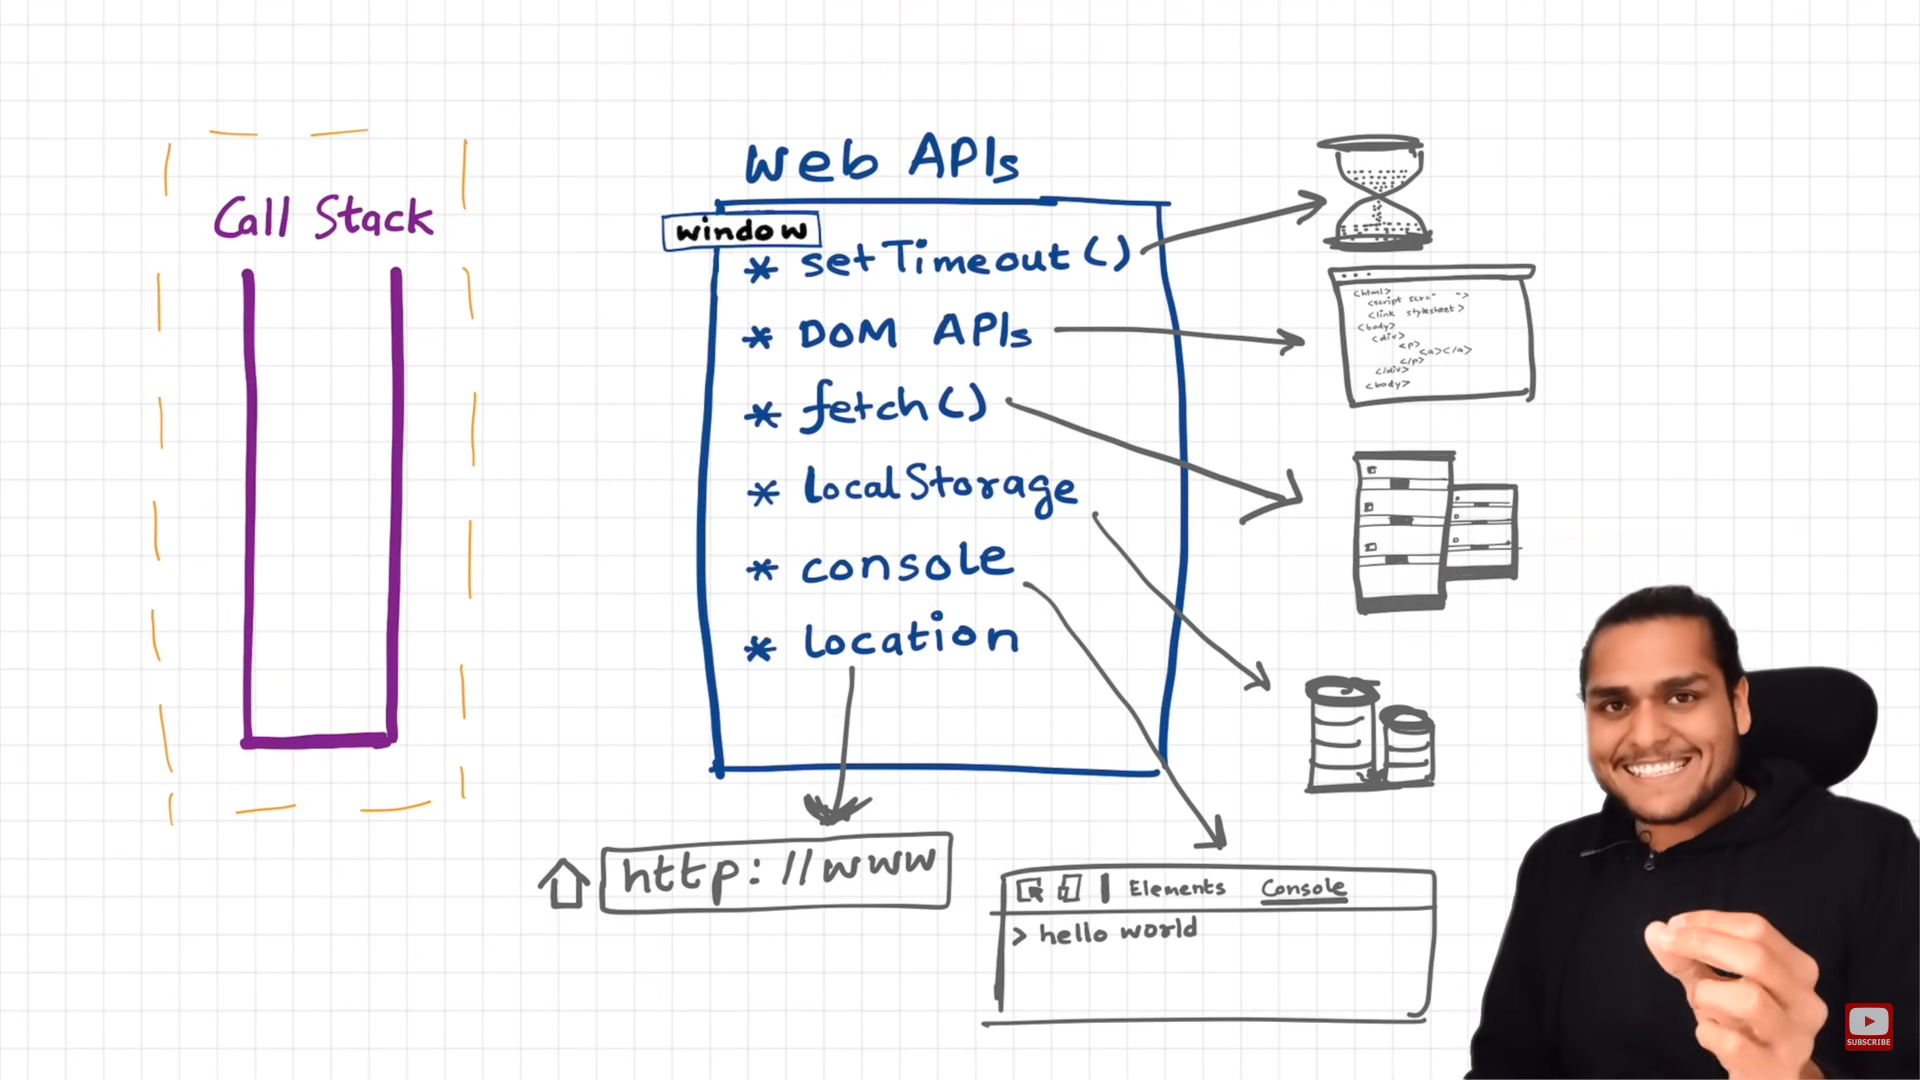 Call Stack
Web APIs
window
* setTimeout()
* DOM APIs
* fetch()
* localStorage
* console
* location
<html>
<link stylesheet>
<body>
<div>
<p>
<a></a>
</p>
</div>
<body>
http://www
Elements Console
> hello world
SUBSCRIBE